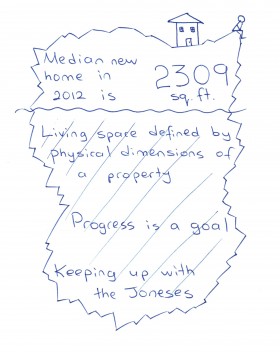 Median new
home in
2012 is
2309
sq. ft.
Living space defined by
physical dimensions of
a property
Progress is a goal
Keeping up with
the Joneses